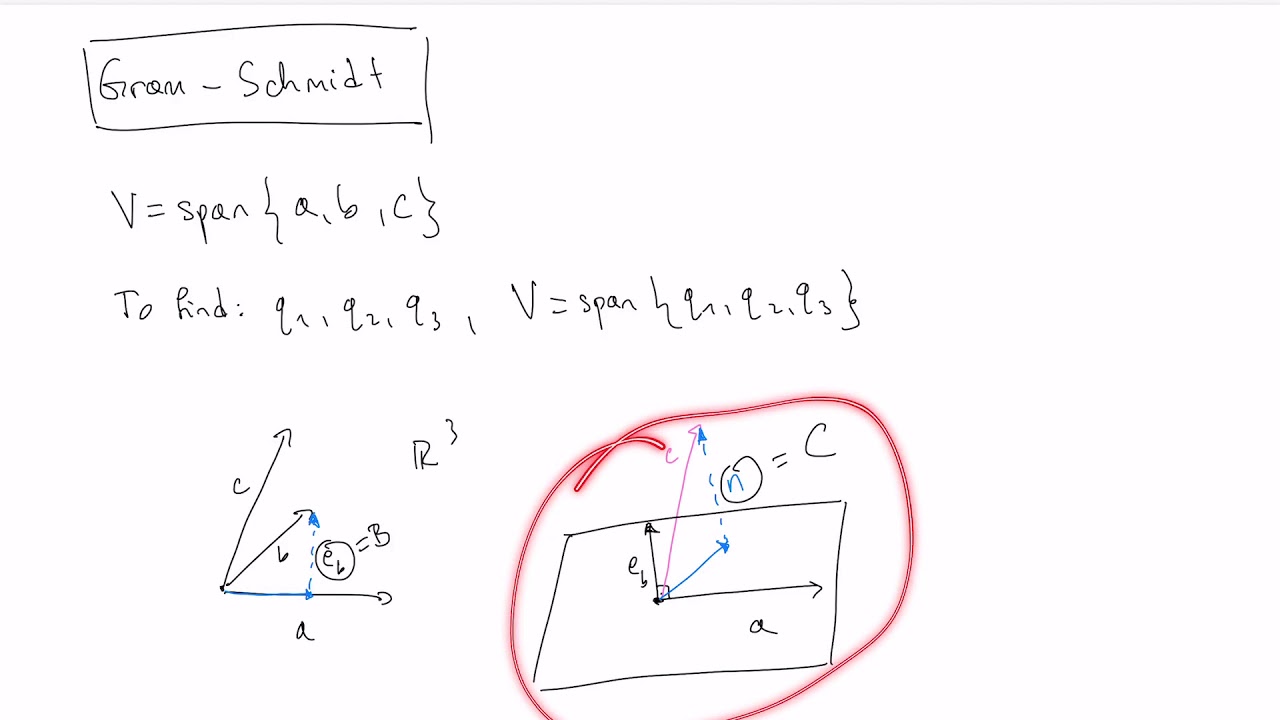 Gram - Schmidt
V = span { a, b, c }
To find: q1, q2, q3, V = span { q1, q2, q3 }
c
b
e_b = B
a
ℝ^3
c
n = C
e_b
a